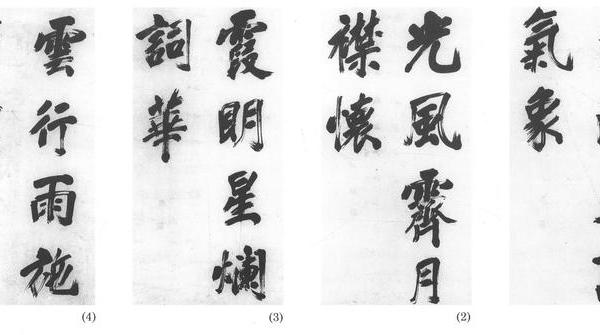 氣象
光風霽月
襟懷
(2)
霞明星爛
詞華
(3)
雲行雨施
(4)